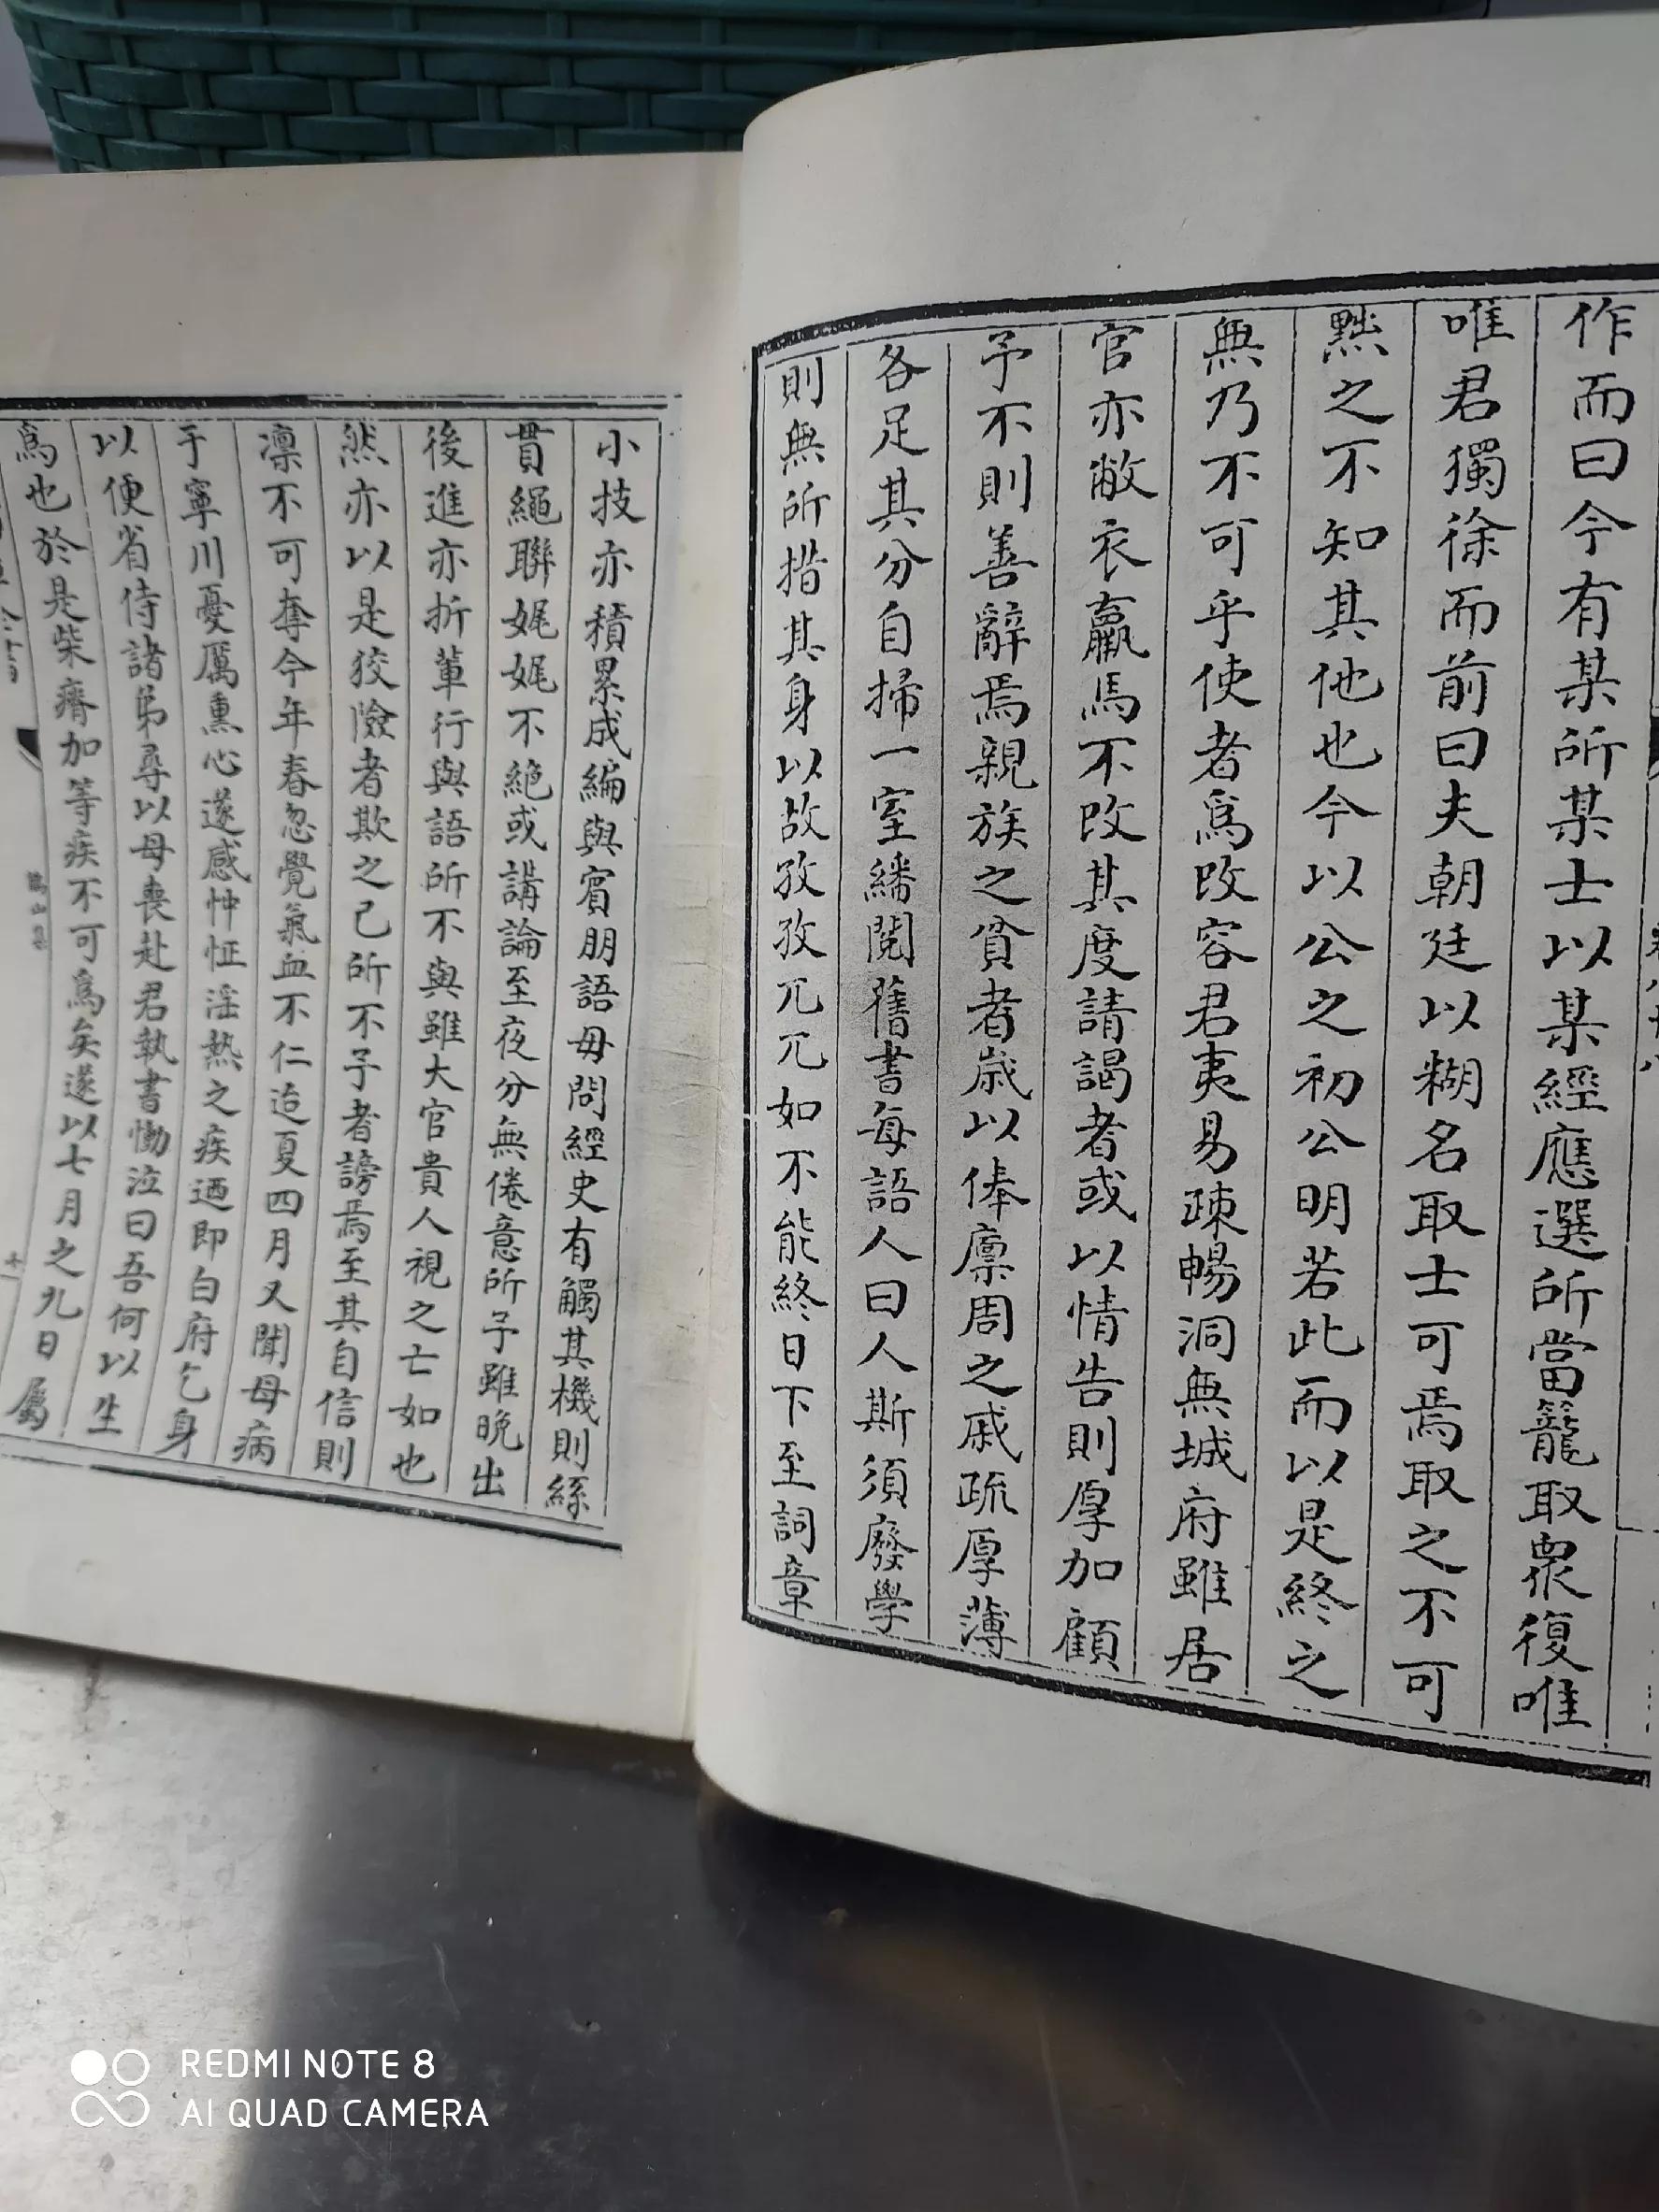 作而曰今有某所某士以某經應選所當籠取衆復唯
唯君獨徐而前曰夫朝廷以糊名取士可焉取之不可
黜之不知其他也今以公之初公明若此而以是終之
無乃不可乎使者爲改容君夷易疎暢洞無城府雖居
官亦敝衣羸馬不改其度請謁者或以情告則厚加顧
予不則善辭焉親族之貧者歲以俸廩周之戚疏厚薄
各足其分自掃一室繙閱舊書每語人曰人斯須廢學
則無所措其身以故孜孜兀兀如不能終日下至詞章
小技亦積累成編與賓朋語毋問經史有觸其機則絲
貫繩聯娓娓不絕或講論至夜分無倦意所予雖晚出
後進亦折輩行與語所不與雖大官貴人視之亡如也
然亦以是狡險者欺之己所不予者謗焉至其自信則
凛不可奪今年春忽覺氣血不仁迨夏四月又聞母病
于寧川憂厲熏心遂感忡怔淫熱之疾迺即白府乞身
以便省侍諸弟尋以母喪赴君執書慟泣曰吾何以生
爲也於是柴瘠加等疾不可爲矣遂以七月之九日屬
十一
REDMI NOTE 8
AI QUAD CAMERA